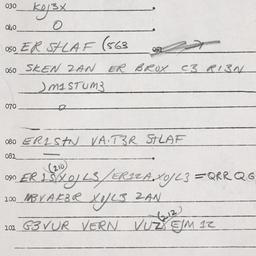 030 KOJ3X
040 O
050 ERStLAF (563
060 SKEN ZAN ER BROX C3 R13N
JM1STUM3
070 O
080 ER1StN VA.T3R StLAF
082
(210)
090 ER1S/XOJLS/ER1ZA,XOJLS = QRR QG
100 MBVAF3R XOJLS ZAN
(212)
101 G3VUR VERN VUZ EJM 1Z